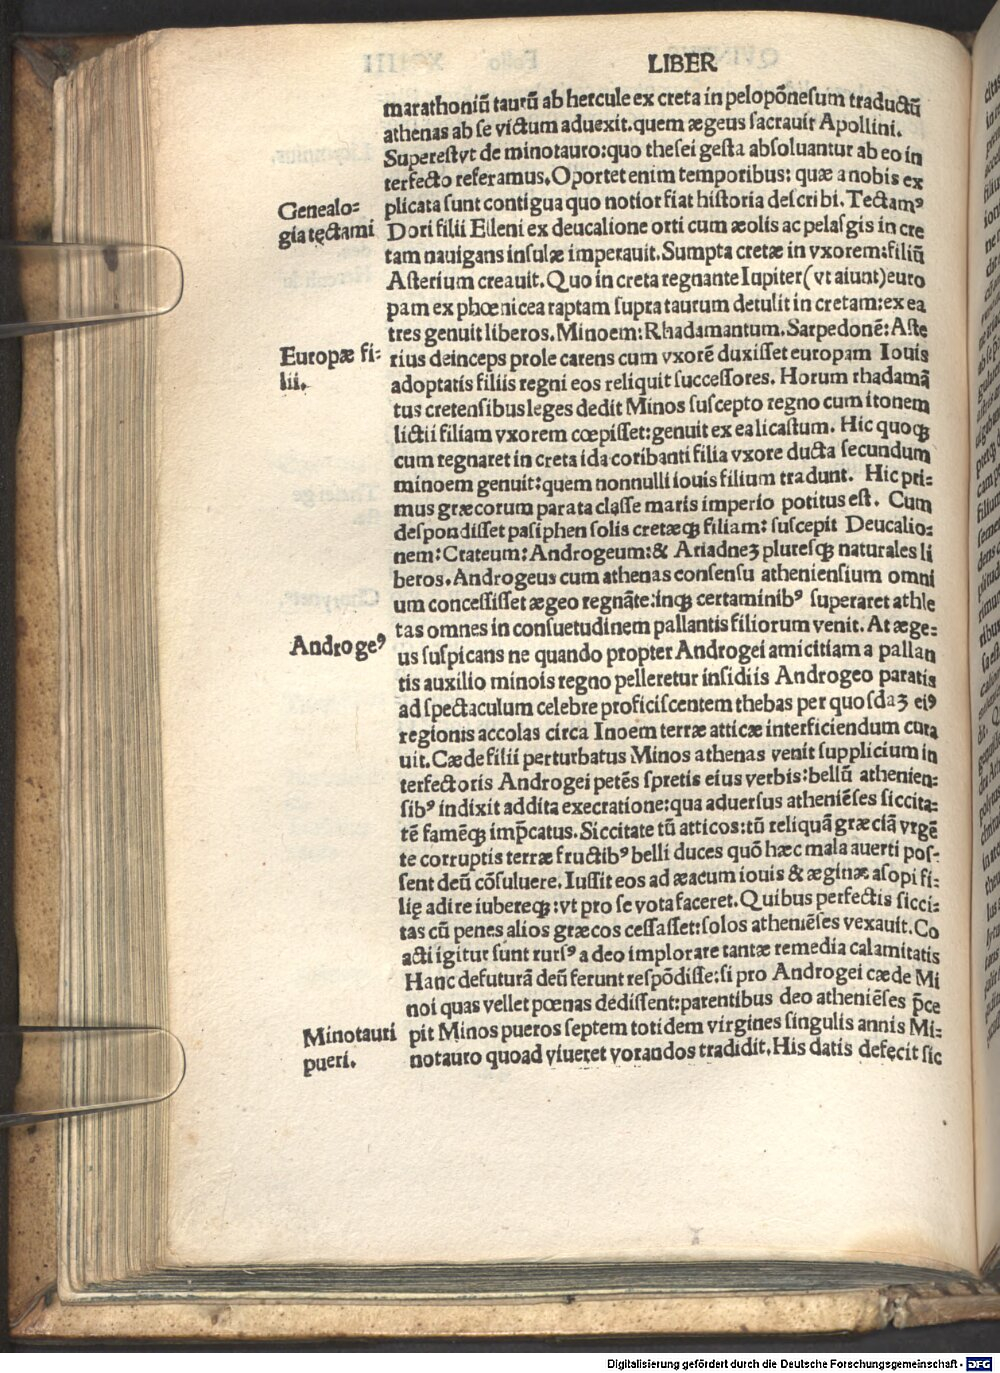 LIBER
marathoniū taurū ab hercule ex creta in pelopōnesum traductū
athenas ab se victum aduexit.quem ægeus sacrauit Apollini.
Superestvt de minotauro:quo thesei gesta absoluantur ab eo in
terfecto referamus.Oportet enim temporibus: quæ a nobis ex
Genealo=
plicata sunt contigua quo notior fiat historia describi. Tectamꝰ
gia tęctami
Dori filii Elleni ex deucalione orti cum æolis ac pelasgis in cre
tam nauigans insulæ imperauit.Sumpta cretæ in vxorem:filiū
Asterium creauit.Quo in creta regnante Iupiter(vt aiunt)euro
pam ex phœnicea raptam supra taurum detulit in cretam:ex ea
tres genuit liberos.Minoem:Rhadamantum.Sarpedonē:Aste
Europæ fi=
rius deinceps prole carens cum vxorē duxisset europam Iouis
lii.
adoptatis filiis regni eos reliquit successores. Horum rhadamā
tus cretensibus leges dedit Minos suscepto regno cum itonem
lictii filiam vxorem cœpisset:genuit ex ea licastum. Hic quoqꝫ
cum regnaret in creta ida coribanti filia vxore ducta secundum
minoem genuit:quem nonnulli iouis filium tradunt. Hic pri=
mus græcorum parata classe maris imperio potitus est. Cum
despondisset pasiphen solis cretæqꝫ filiam: suscepit Deucalio=
nem:Crateum:Androgeum:& Ariadneꝫ pluresqꝫ naturales li
beros.Androgeus cum athenas consensu atheniensium omni
um concessisset ægeo regnāte:inqꝫ certaminibꝰ superaret athle
Androgeꝰ
tas omnes in consuetudinem pallantis filiorum venit. At æge=
us suspicans ne quando propter Androgei amicitiam a pallan
tis auxilio minois regno pelleretur insidiis Androgeo paratis
ad spectaculum celebre proficiscentem thebas per quosdaꝫ eiꝰ
regionis accolas circa Inoem terræ atticæ interficiendum cura
uit.Cæde filii perturbatus Minos athenas venit supplicium in
terfectoris Androgei petēs spretis eius verbis:bellū athenien=
sibꝰ indixit addita execratione:qua aduersus atheniēses siccita=
tē famēqꝫ imp̄catus.Siccitate tū atticos:tū reliquā græciā vrgē
te corruptis terræ fructibꝰ belli duces quō hæc mala auerti pos=
sent deū cōsuluere.Iussit eos ad æacum iouis & æginæ asopi fi=
lię adire iubereqꝫ:vt pro se vota faceret.Quibus perfectis sicci=
tas cū penes alios græcos cessasset:solos atheniēses vexauit.Co
acti igitur sunt rursꝰ a deo implorare tantæ remedia calamitatis
Hanc defuturā deū ferunt respōdisse:si pro Androgei cæde Mi
noi quas vellet pœnas dedissent:parentibus deo atheniēses p̄ce
Minotauri
pit Minos pueros septem totidem virgines singulis annis Mi=
pueri.
notauro quoad viueret vorandos tradidit.His datis defęcit sic
Digitalisierung gefördert durch die Deutsche Forschungsgemeinschaft - DFG